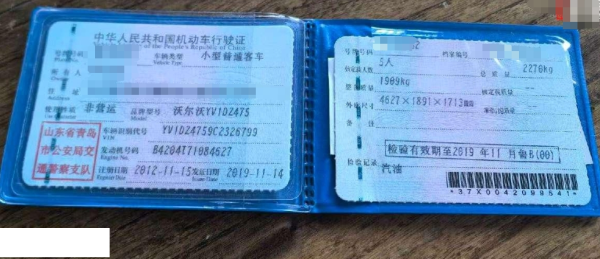 中华人民共和国机动车行驶证
of the People's Republic of China
号牌号码
车辆类型 小型普通客车
Vehicle Type
所有人
住址
使用性质 非营运 品牌型号 沃尔沃YV1DZ475
山东省青岛
市公安局交
通警察支队
车辆识别代号 YV1DZ4759C2326799
VIN
发动机号码 B4204T71084627
Engine No.
注册日期 2012-11-15 发证日期 2019-11-14
号牌号码 档案编号
5人
核定载人数 总质量 2270kg
整备质量 1909kg 核定载质量
外廓尺寸 4627×1891×1713
检验有效期至2019年11月
检验记录 汽油